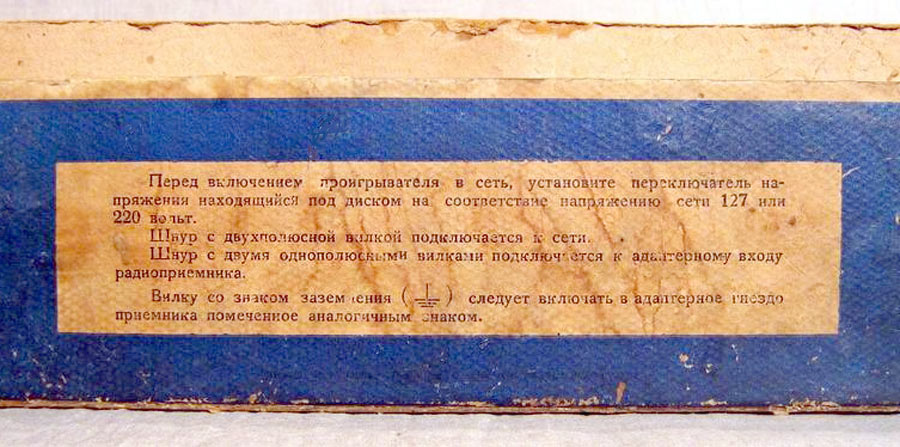 Перед включением проигрывателя в сеть, установите переключатель на-
пряжения находящийся под диском на соответствие напряжению сети 127 или
220 вольт.
Шнур с двухполюсной вилкой подключается к сети.
Шнур с двумя однополюсными вилками подключается к адаптерному входу
радиоприемника.
Вилку со знаком заземления (⏚) следует включать в адаптерное гнездо
приемника помеченное аналогичным знаком.